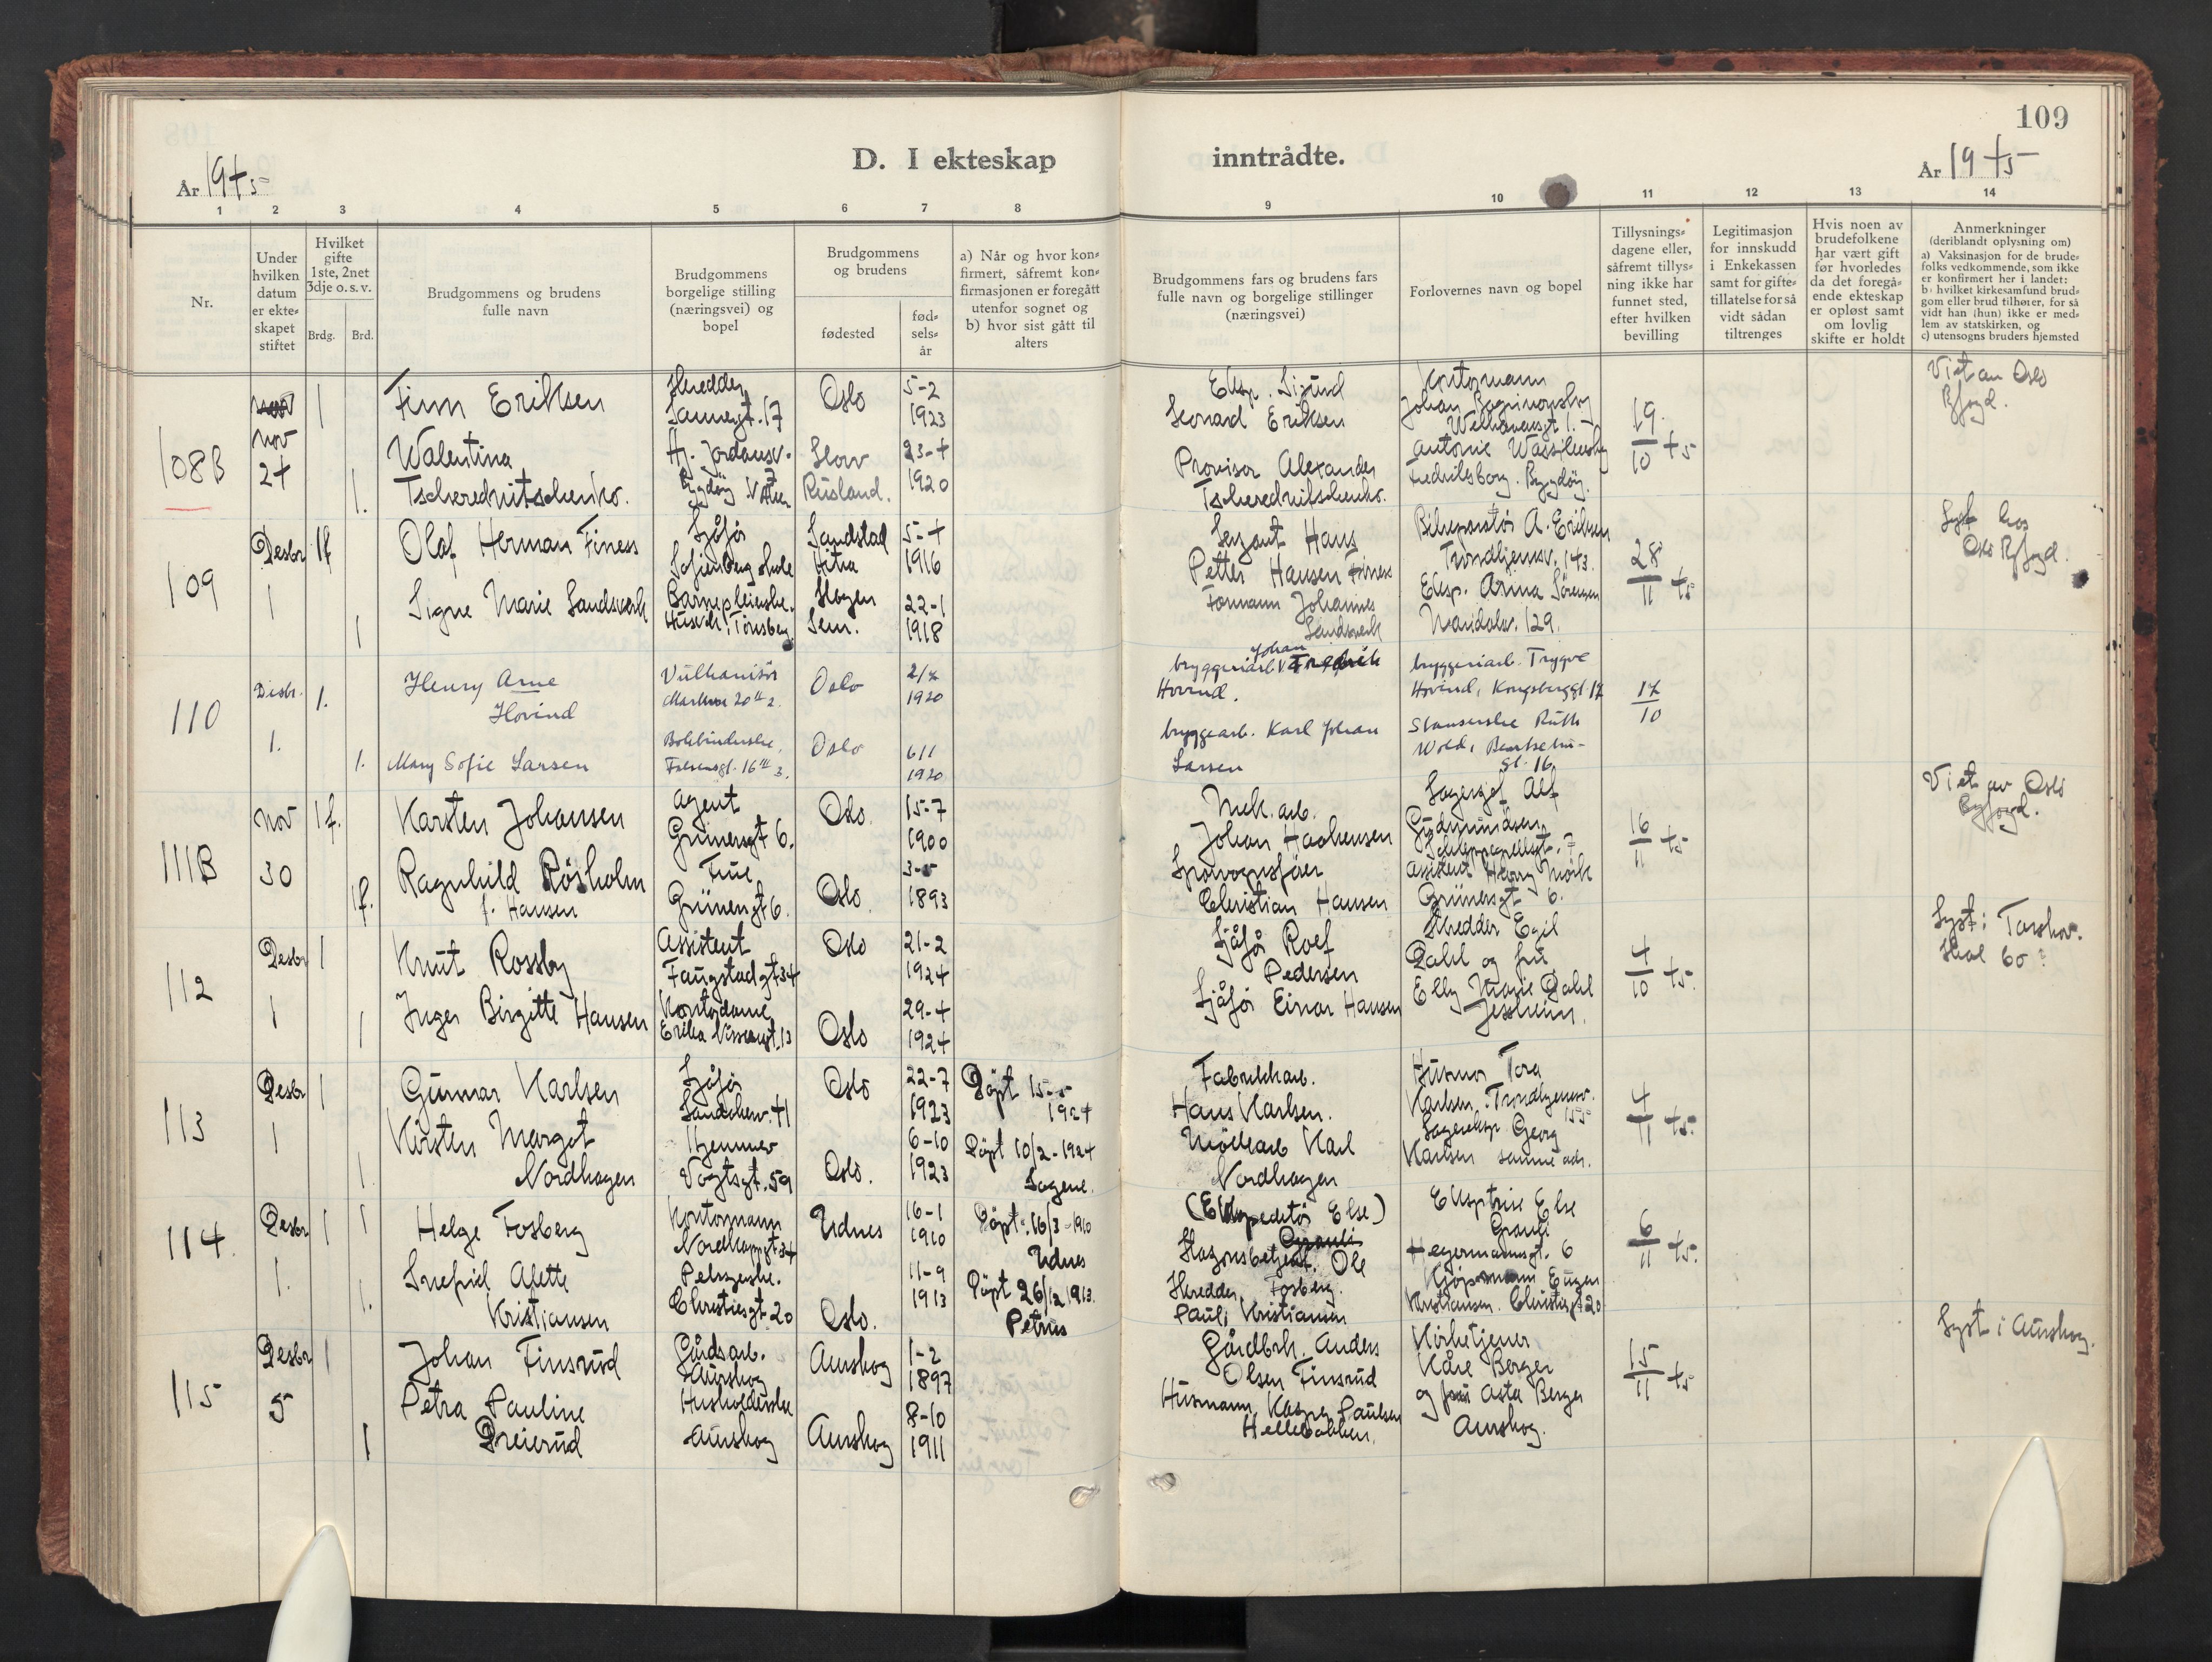 109
D. I ekteskap inntrådte.
År 1945
År 1945
1 2 3 4 5 6 7 8 9 10 11 12 13 14
Nr.
Under hvilken datum er ekte-skapet stiftet
Hvilket gifte 1ste, 2net 3dje o. s. v.
Brdg. Brd.
Brudgommens og brudens fulle navn
Brudgommens borgelige stilling (næringsvei) og bopel
Brudgommens og brudens
fødested
fød-sels-år
a) Når og hvor kon-firmert, såfremt kon-firmasjonen er foregått utenfor sognet og b) hvor sist gått til alters
Brudgommens fars og brudens fars fulle navn og borgelige stillinger (næringsvei)
Forlovernes navn og bopel
Tillysnings-dagene eller, såfremt tillys-ning ikke har funnet sted, efter hvilken bevilling
Legitimasjon for innskudd i Enkekassen samt for gifte-tillatelse for så vidt sådan tiltrenges
Hvis noen av brudefolkene har vært gift før hvorledes da det foregå-ende ekteskap er opløst samt om lovlig skifte er holdt
Anmerkninger (deriblandt oplysning om) a) Vaksinasjon for de brude-folks vedkommende, som ikke er konfirmert her i landet: b) hvilket kirkesamfund brud-gom eller brud tilhører, for så vidt han (hun) ikke er med-lem av statskirken, og c) utensogns bruders hjemsted
108B
nov
24
1
Finn Eriksen
Sannergt. 17
Oslo
5-2
1923
Leonard Eriksen
Kontormann
Johan
19/10 45
Viet av Oslo
Byfogd.
1.
Walentina
Tscherednitschenko.
Bygdøy
Rusland.
23-4
1920
Provisor Alexander
Tscherednitschenko.
Fredriksborg. Bygdøy.
109
Desbr
1
1f
Olaf Herman Finess
Sjåfør
Sofienberg skole
Sandstad
Hitra
5-4
1916
Sersjant Hans
Petter Hansen Finess
A. Eriksen
Trondhjemsv. 143.
28/11 45
Oslo Byfogd.
1
Signe Marie Sandsverk
Barnepleierske.
Tønsberg
Sem.
22-1
1918
Formann Johannes
Sandsverk
Eksp. Anna Sørensen
Maridalsv. 129.
110
Desbr.
1.
1.
Henry Arne
Hovind
Vulkanisør
Oslo
1920
Johan
bryggeriarb. Fredrik
Hovind.
bryggeriarb. Trygve
Hovind, Kongsberggt. 17
17/10
1.
Mary Sofie Larsen
Bokbinderske,
Oslo
6/1
1920
bryggearb. Karl Johan
Larsen
Ruth
Wold, Bentsebru-
gt. 16.
111B
nov
30
1f.
Karsten Johansen
Agent
Grünersgt 6.
Oslo.
15-7
1900
Mek. arb.
Johan Haakensen
Lagersjef Alf
Gudmundsen,
16/11 45
Viet av Oslo
Byfogd.
1f.
Ragnhild Røsholm
f. Hansen
Frue
Grünersgt 6.
Oslo.
1893
Christian Hansen
Assistent Henry Mørk
Grünersgt 6.
112
Desbr
1
1
Knut Rossby
Assistent
Oslo
21-2
1924
Sjåfør Rolf
Pedersen
Skredder Egil
Dahl og fru
4/10 45.
1
Inger Birgitte Hansen
Kontordame
Oslo
29-4
1924
Sjåfør Einar Hansen
Elly Marie Dahl
Jessheim.
113
Desbr
1
1
Gunnar Karlsen
Sjåfør
Oslo
22-7
1923
Døpt 15-5
1924
Fabrikkarb.
Hans Karlsen.
Husmor Tora
Karlsen. Trondhjemsv.
155
4/11 45.
1.
Kirsten Margot
Nordhagen
Hjemme
Vogtsgt. 59
Oslo.
6-10
1923
Døpt 10/2-1924
Sagene.
Karl
Nordhagen
Lagereksp. Georg
Karlsen samme adr.
114.
Desbr
1.
1
1
Helge Fosberg
Kontormann
Nordkappgt 34
Udnes
16-1
1910
Døpt. 16/3-1910
Udnes
(Ekspeditør Else)
Grauli
Ole
Fosberg.
Else
Grauli
Hegermannsgt. 6
6/11 45.
1.
Snefrid Alette
Kristiansen
Christiesgt. 20
Oslo.
11-9
1913
Døpt 26/12 1913.
Petrus
Skredder
Paul Kristiansen
Kjøpmann Eugen
Kristiansen. Christiesgt 20
115
Desbr
5
1
Johan Finsrud
Gårdsarb.
Aurskog
Aurskog
1-2
1897
Gårdbrk. Anders
Olsen Finsrud
Kirketjener
Kåre Berger
15/11 45
Lyst i Aurskog.
1
Petra Pauline
Dreierud
Husholderske
Aurskog
Aurskog
8-10
1911
Husmann, Kasper Paulsen
Hellebakken.
og fru Asta Berger
Aurskog.